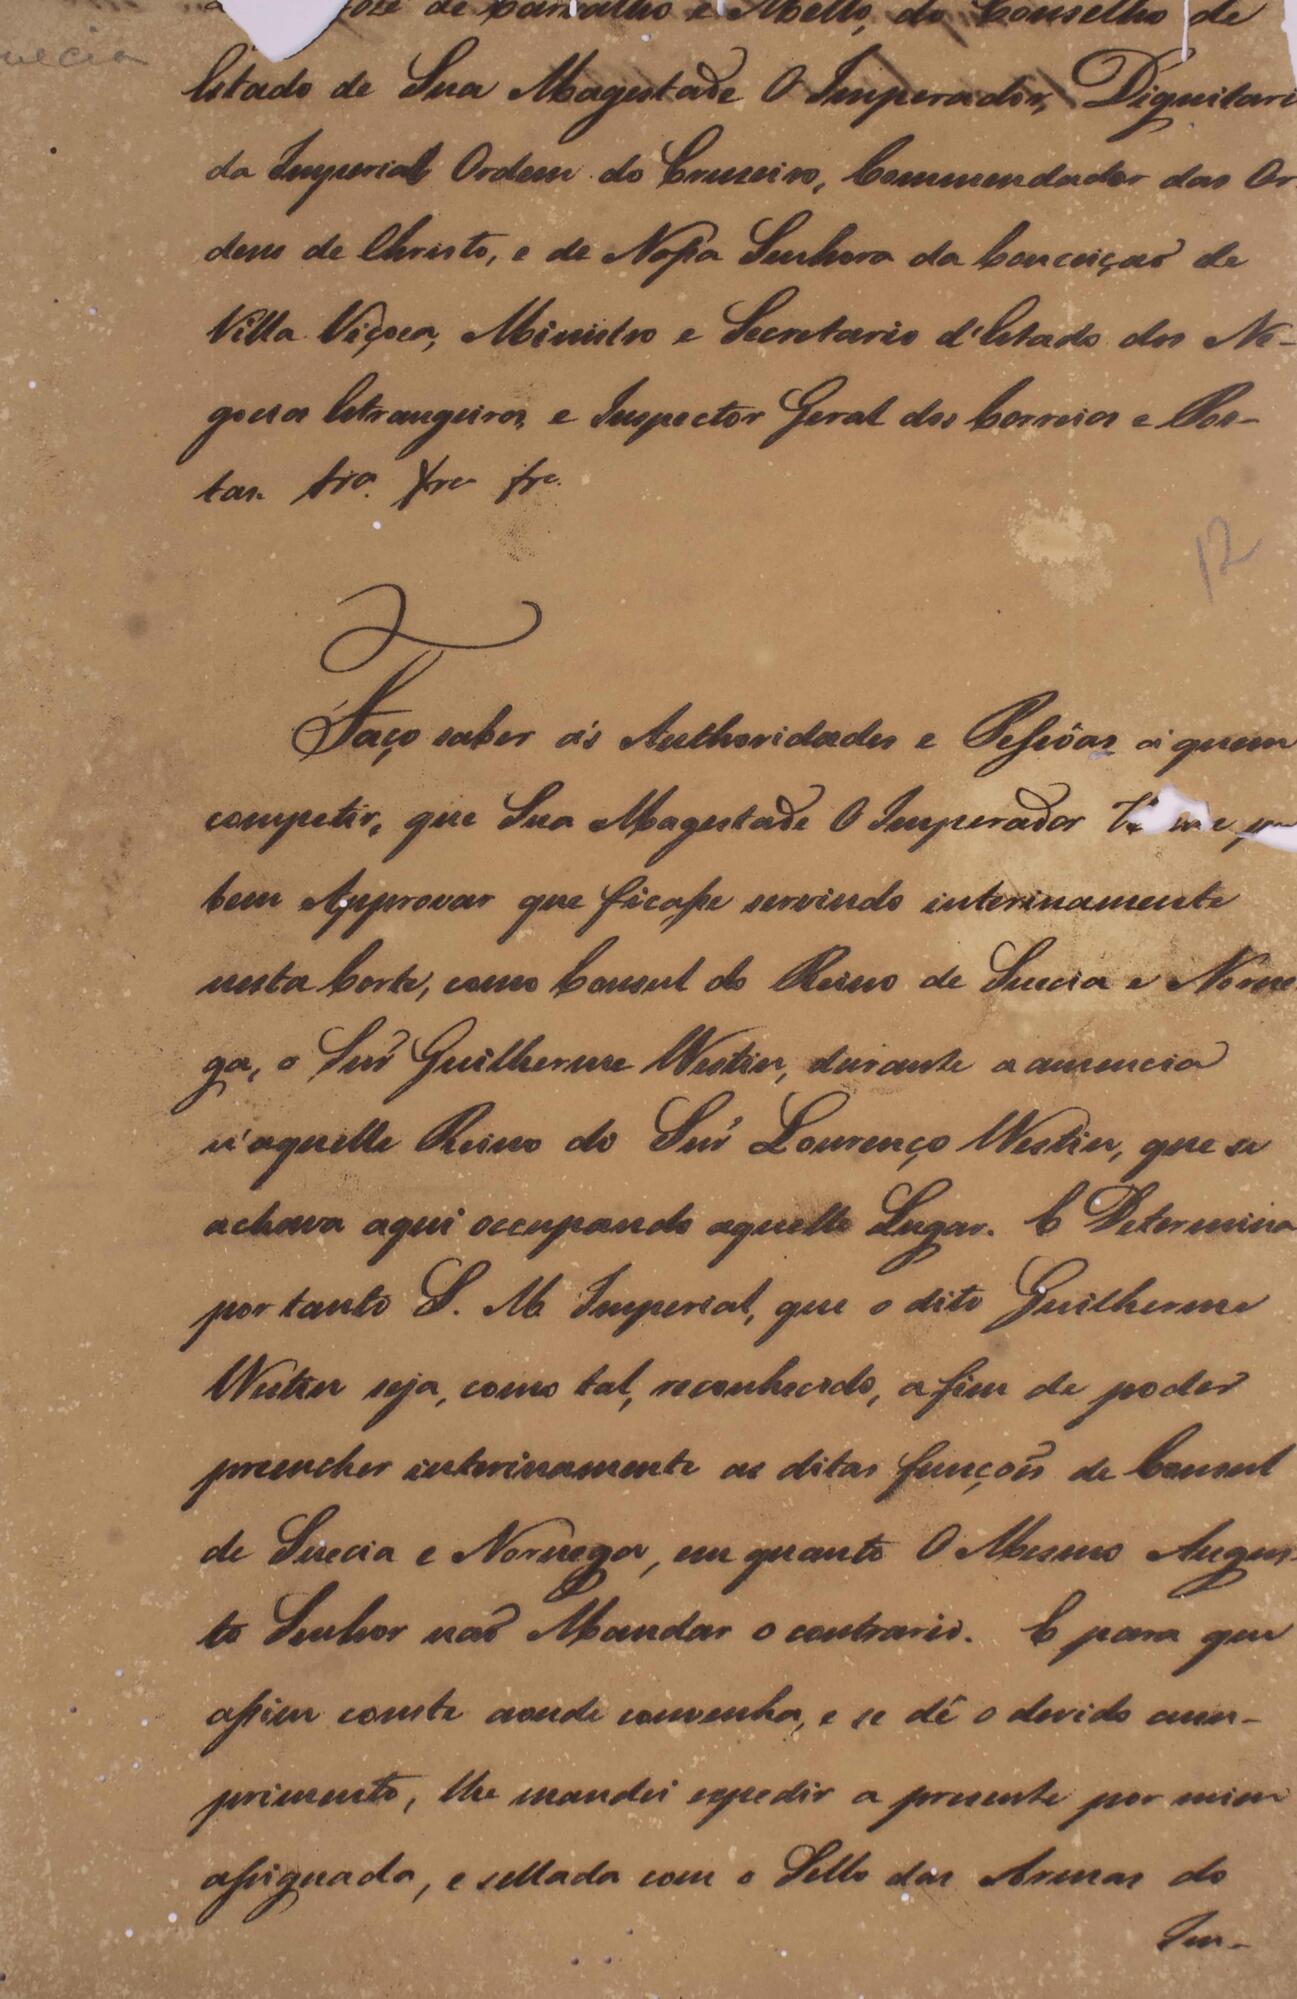 José de Carvalho e Mello, do Conselho de
Suecia
Estado de Sua Magestade O Imperador, Dignitari
da Imperial Ordem do Cruzeiro, Commendador das Or-
dens de Christo, e de Nossa Senhora da Conceição de
Villa Viçoza, Ministro e Secretario d'Estado dos Ne-
gocios Estrangeiros, e Inspector Geral dos Correios e Pos-
tas. &ra. &ra &ra.
12
Faço saber ás Authoridades e Pessôas á quem
competir, que Sua Magestade O Imperador
bem Approvar que ficasse servindo interinamente
nesta Corte, como Consul do Reino de Suecia e Norue
ga, o Snr̃ Guilherme Westin, durante a auzencia
n'aquelle Reino do Snr̃ Lourenço Westin, que se
achava aqui occupando aquelle Lugar. E Determina
por tanto S. M. Imperial, que o dito Guilherme
Westin seja, como tal, reconhecido, a fim de poder
preencher interinamente as ditas funções de Consul
de Suecia e Noruega, em quanto O Mesmo Augus-
to Senhor não Mandar o contrario. E para que
assim conste aonde convenha, e se dê o devido cum-
primento, lhe mandei expedir a prezente por mim
assignada, e sellada com o Sello das Armas do
Im-